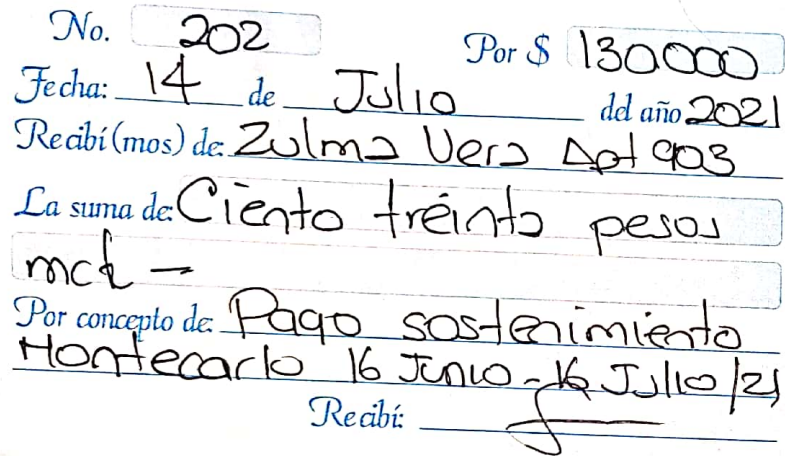 No. 202 Por $ 130000
Fecha: 14 de Julio del año 2021
Recibí(mos) de: Zulma Vera Apt 903
La suma de: Ciento treinta pesos
mct -
Por concepto de: Pago sostenimiento
Montecarlo 16 Junio - 16 Julio/21
Recibí: